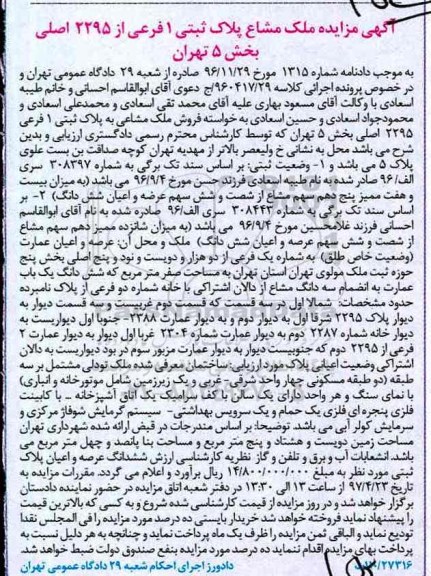 آگهی مزایده ملک مشاع پلاک ثبتی ۱ فرعی از ۲۲۹۵ اصلی
بخش ۵ تهران
به موجب دادنامه شماره ۱۳۱۵ مورخ ۹۶/۱۱/۲۹ صادره از شعبه ۲۹ دادگاه عمومی تهران و
در خصوص پرونده اجرائی کلاسه ۹۶۰۴۱۷/۲۹/ج دعوی آقای ابوالقاسم احسانی و خانم طیبه
اسعادی با وکالت آقای مسعود بهاری علیه آقای محمد تقی اسعادی و محمدعلی اسعادی و
محمودجواد اسعادی و حسین اسعادی به خواسته فروش ملک مشاعی به پلاک ثبتی ۱ فرعی
۲۲۹۵ اصلی بخش ۵ تهران که توسط کارشناس محترم رسمی دادگستری ارزیابی و بدین
شرح می باشد محل به نشانی خ ولیعصر بالاتر از مهدیه تهران کوچه صداقت بن بست علوی
پلاک ۵ می باشد و ۱- وضعیت ثبتی: بر اساس سند تک برگی به شماره ۳۰۸۳۹۷ سری
الف/۹۶ صادر شده به نام طیبه اسعادی فرزند حسن مورخ ۹۶/۹/۴ می باشد (به میزان بیست
و هفت ممیز پنج دهم سهم مشاع از شصت و شش سهم عرصه و اعیان شش دانگ) ۲- بر
اساس سند تک برگی به شماره ۳۰۸۴۴۳ سری الف/۹۶ صادره شده به نام آقای ابوالقاسم
احسانی فرزند غلامحسین مورخ ۹۶/۹/۴ می باشد (به میزان شانزده ممیز دهم سهم مشاع
از شصت و شش سهم عرصه و اعیان شش دانگ) ملک و محل آن: عرصه و اعیان عمارت
(وضعیت خاص طلق) به شماره یک فرعی از دو هزار و دویست و نود و پنج اصلی بخش پنج
حوزه ثبت ملک مولوی تهران استان تهران به مساحت صفر متر مربع که شش دانگ یک باب
عمارت به انضمام سه دانگ مشاع از دالان اشتراکی با خانه شماره دو فرعی از پلاک نامبرده
حدود مشخصات: شمالا اول در سه قسمت که قسمت دوم غربیست و سه قسمت دیوار به
دیوار پلاک ۲۲۹۵ شرقا اول به دیوار دوم و به دیوار عمارت ۲۳۸۸ جنوبا اول دیواریست به
دیوار خانه شماره ۲۲۸۷ دوم به دیوار عمارت شماره ۲۳۰۴ غربا اول دیوار به دیوار عمارت ۲
فرعی از ۲۲۹۵ دوم که جنوبیست دیوار به دیوار عمارت مزبور سوم در بود دیواریست به دالان
اشتراکی وضعیت اعیانی پلاک مورد ارزیابی: ساختمان معرفی شده ملک تودلی مشتمل بر سه
طبقه (دو طبقه مسکونی چهار واحد شرقی - غربی و یک زیرزمین شامل موتورخانه و انباری)
با نمای سنگ و هر واحد دارای یک سالن با کف سرامیک یک اتاق آشپزخانه - با کابینت
فلزی پنجره ای فلزی یک حمام و یک سرویس بهداشتی- سیستم گرمایش شوفاژ مرکزی و
سرمایش کولر آبی می باشد. توضیحا: بر اساس مندرجات در قبض ارائه شده شهرداری تهران
مساحت زمین دویست و هشتاد و پنج متر مربع و مساحت بنا پانصد و چهل متر مربع می
باشد. انشعابات آب و برق و تلفن و گاز نظریه کارشناسی ارزش ششدانگ عرصه و اعیان پلاک
ثبتی مورد نظر به مبلغ ۱۴/۸۰۰/۰۰۰/۰۰۰ ریال برآورد و اعلام می گردد. مقررات مزایده به
تاریخ ۹۷/۴/۲۳ از ساعت ۱۳ الی ۱۳:۳۰ در دفتر شعبه اتاق مزایده در حضور نماینده دادستان
برگزار خواهد شد و در روز مزایده از قیمت کارشناسی شده شروع و به کسی که بالاترین قیمت
را پیشنهاد نماید فروخته خواهد شد خریدار بایستی ده درصد مورد مزایده را فی المجلس نقدا
تودیع نماید و الباقی ثمن مزایده را ظرف یک ماه پرداخت نماید و چنانچه به هر دلیل نسبت به
پرداخت بهای مزایده اقدام ننماید ده درصد مورد مزایده بنفع صندوق دولت ضبط خواهد شد.
دادورز اجرای احکام شعبه ۲۹ دادگاه عمومی تهران